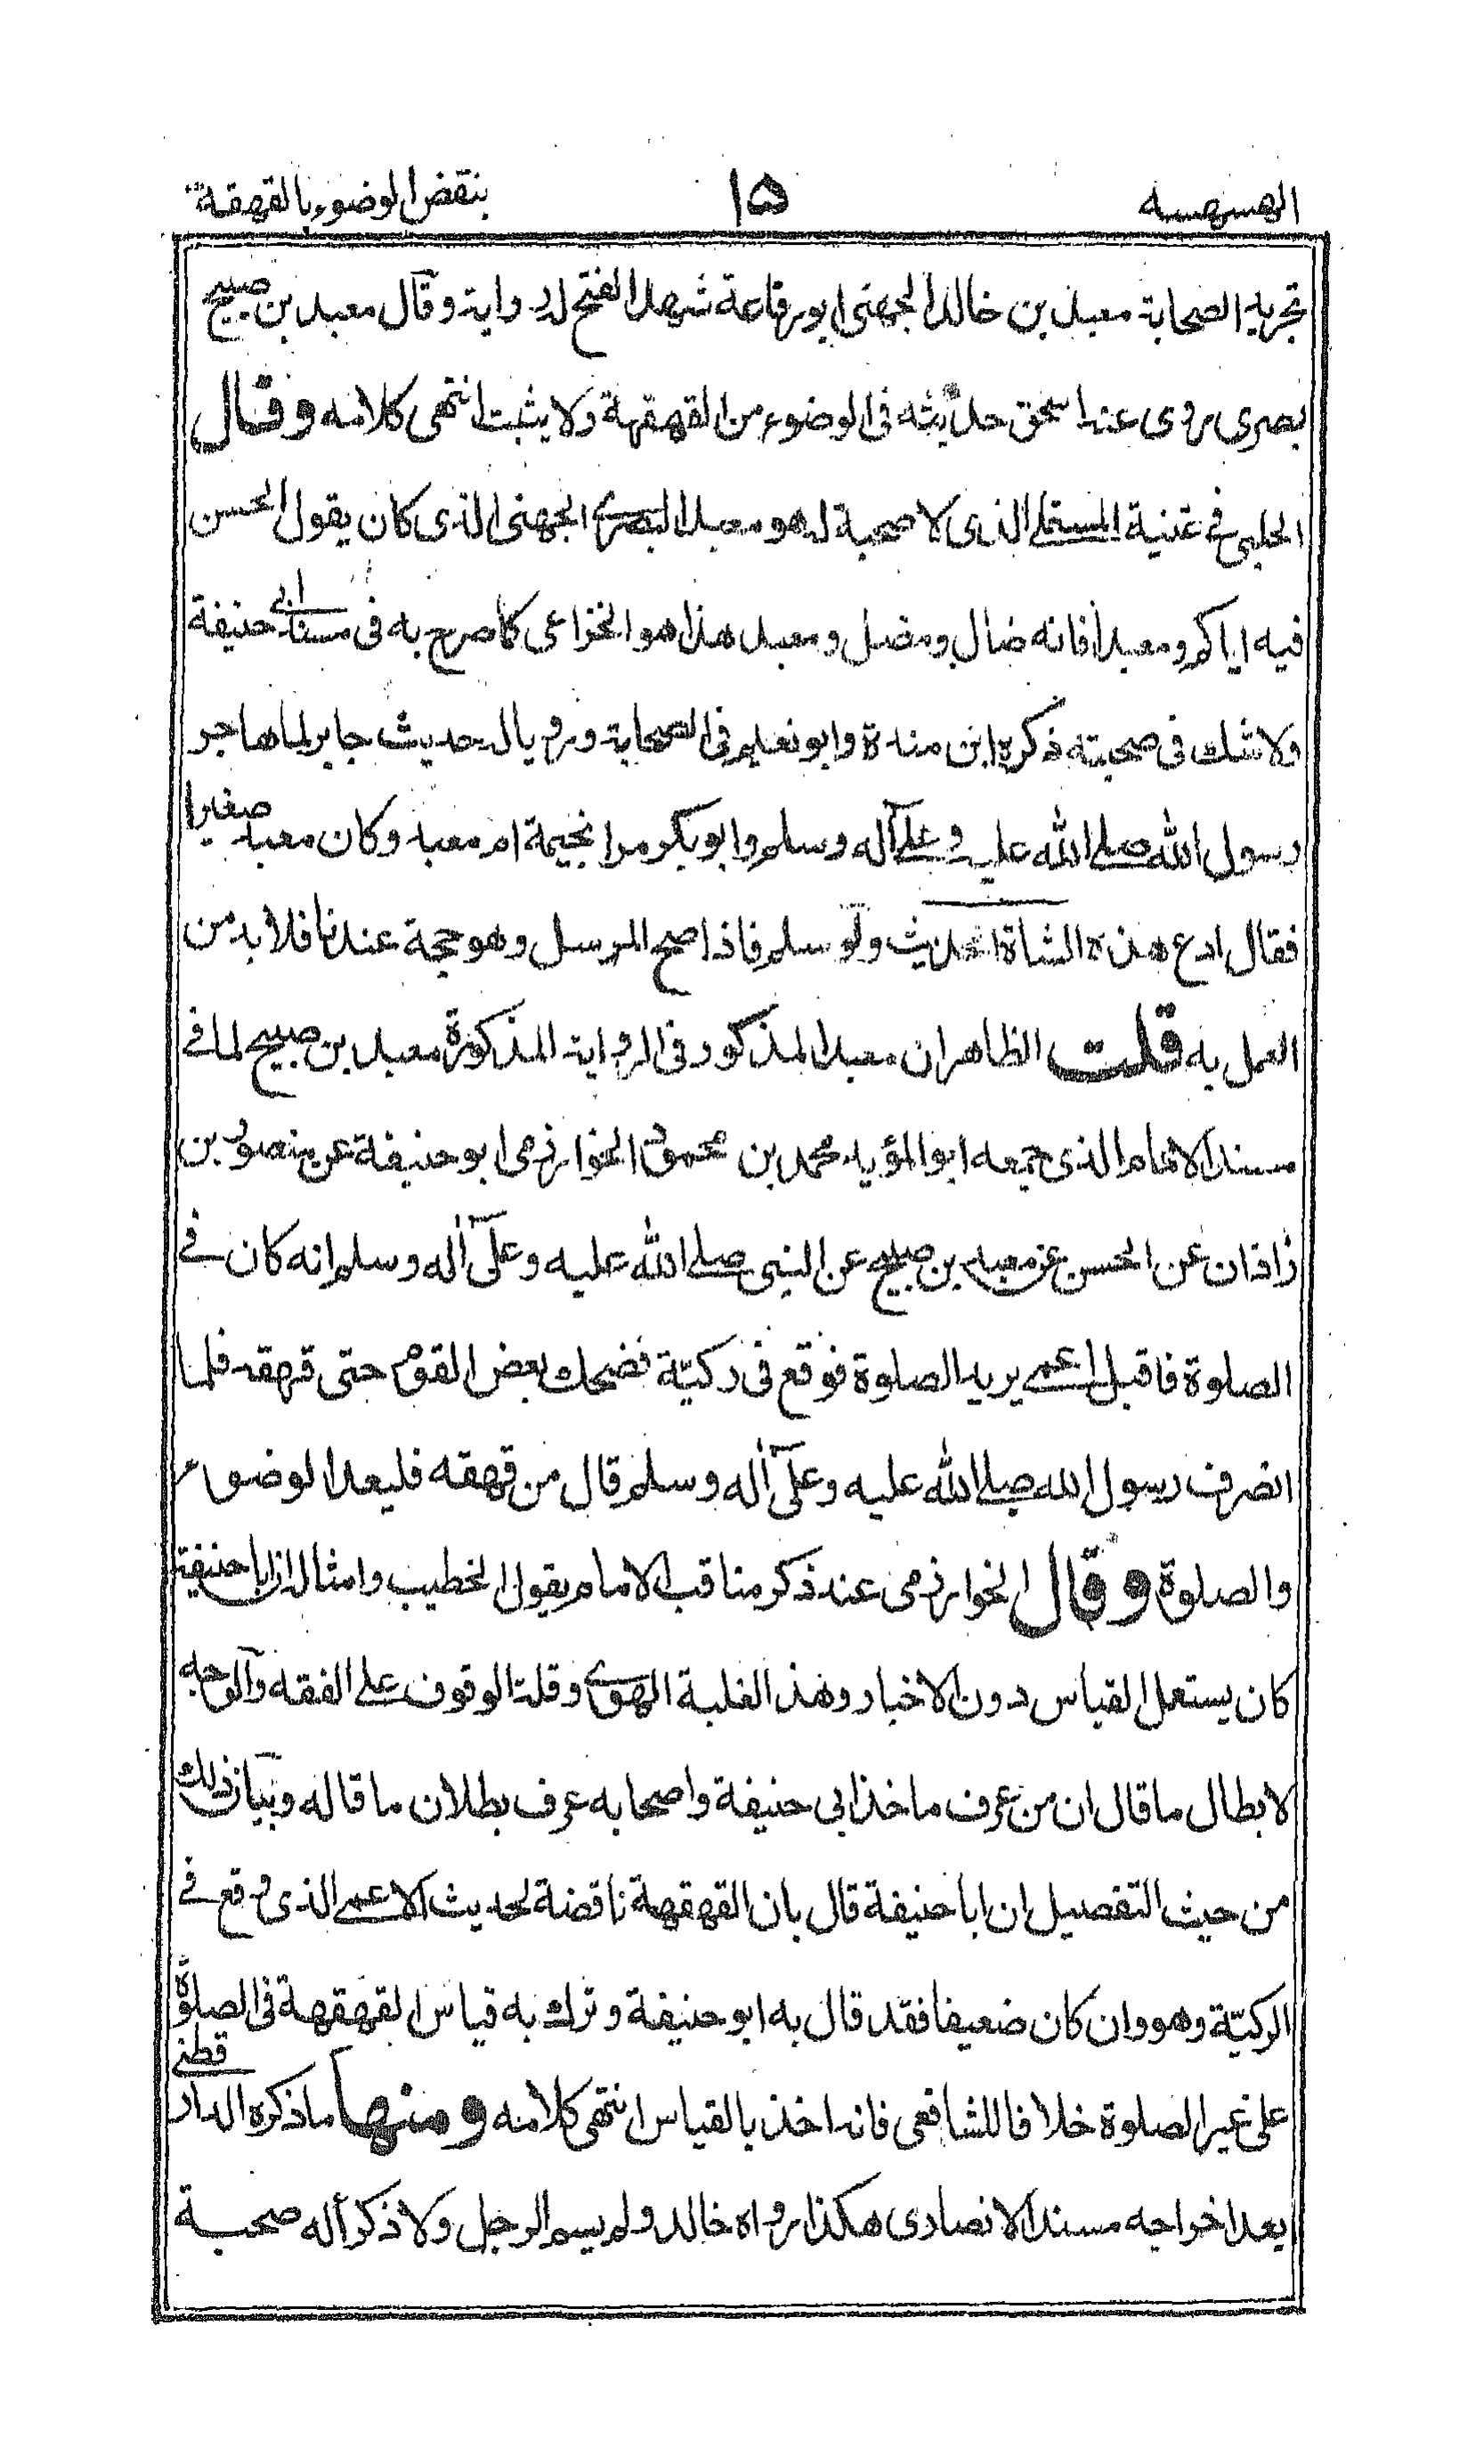 الهسهسة ١٥ بنقض الوضوء بالقهقة
تجريد الصحابة معبد بن خالد الجهنى ابو رفاعة شهد الفتح له رواية وقال معبد بن صبيح
بصرى روى عنه اسحق حديثه فى الوضوء من القهقهة ولا يثبت انتهى كلامه وقال
الحلبى فى غنية المستملى الذى لا صحبة له هو معبد البصرى الجهنى الذى كان يقول الحسن
فيه اياكم ومعبدا فانه ضال ومضل ومعبد هذا هو الخزاعى كما صرح به فى مسند ابى حنيفة
ولا شك فى صحبته ذكره ابن مندة وابو نعيم فى الصحابة ورويا له حديث جابر لما هاجر
رسول الله صلى الله عليه وعلى آله وسلم وابو بكر مرا بخيمة ام معبد وكان معبد صغيرا
فقال ادع هذه الشاة الحديث ولو سلم فاذا صح المرسل وهو حجة عندنا فلا بد من
العمل به قلت الظاهر ان معبد المذكور فى الرواية المذكورة معبد بن صبيح لما فى
مسند الامام الذى جمعه ابو المؤيد محمد بن محمود الخوارزمى ابو حنيفة عن منصور بن
زاذان عن الحسن عن معبد بن صبيح عن النبى صلى الله عليه وعلى آله وسلم انه كان فى
الصلوة فاقبل اعمى يريد الصلوة فوقع فى ركيّة فضحك بعض القوم حتى قهقه فلما
انصرف رسول الله صلى الله عليه وعلى آله وسلم قال من قهقه فليعد الوضوء
والصلوة وقال الخوارزمى عند ذكر مناقب الامام يقول الخطيب وامثاله ان ابا حنيفة
كان يستعمل القياس دون الاخبار وهذا لغلبة الهوى وقلة الوقوف على الفقه والوجه
لابطال ما قال ان من عرف ماخذ ابى حنيفة واصحابه عرف بطلان ما قاله وبيان ذلك
من حيث التفصيل ان ابا حنيفة قال بان القهقهة ناقضة لحديث الاعمى الذى وقع فى
الركيّة وهو وان كان ضعيفا فقد قال به ابو حنيفة وترك به قياس القهقهة فى الصلوة
على غير الصلوة خلافا للشافعى فانه اخذ بالقياس انتهى كلامه ومنها ما ذكره الدارقطنى
بعد اخراجه مسند الانصارى هكذا رواه خالد ولم يسم الرجل ولا ذكر أله صحبة